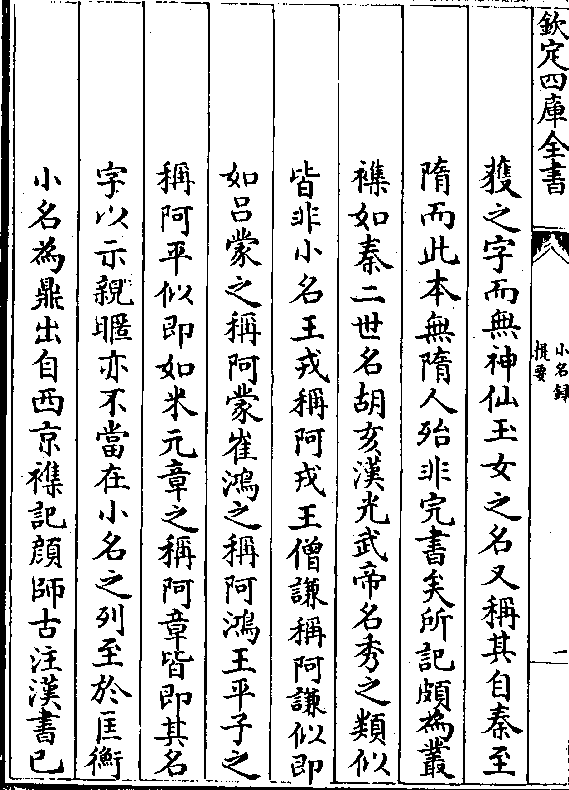 欽定四庫全書
小名録
提要
一
獲之字而無神仙玉女之名又稱其自秦至
隋而此本無隋人殆非完書矣所記頗為叢
襍如秦二世名胡亥漢光武帝名秀之類似
皆非小名王戎稱阿戎王僧謙稱阿謙似即
如吕蒙之稱阿蒙崔鴻之稱阿鴻王平子之
稱阿平似即如米元章之稱阿章皆即其名
字以示親暱亦不當在小名之列至於匡衡
小名為鼎出自西京襍記顔師古注漢書已